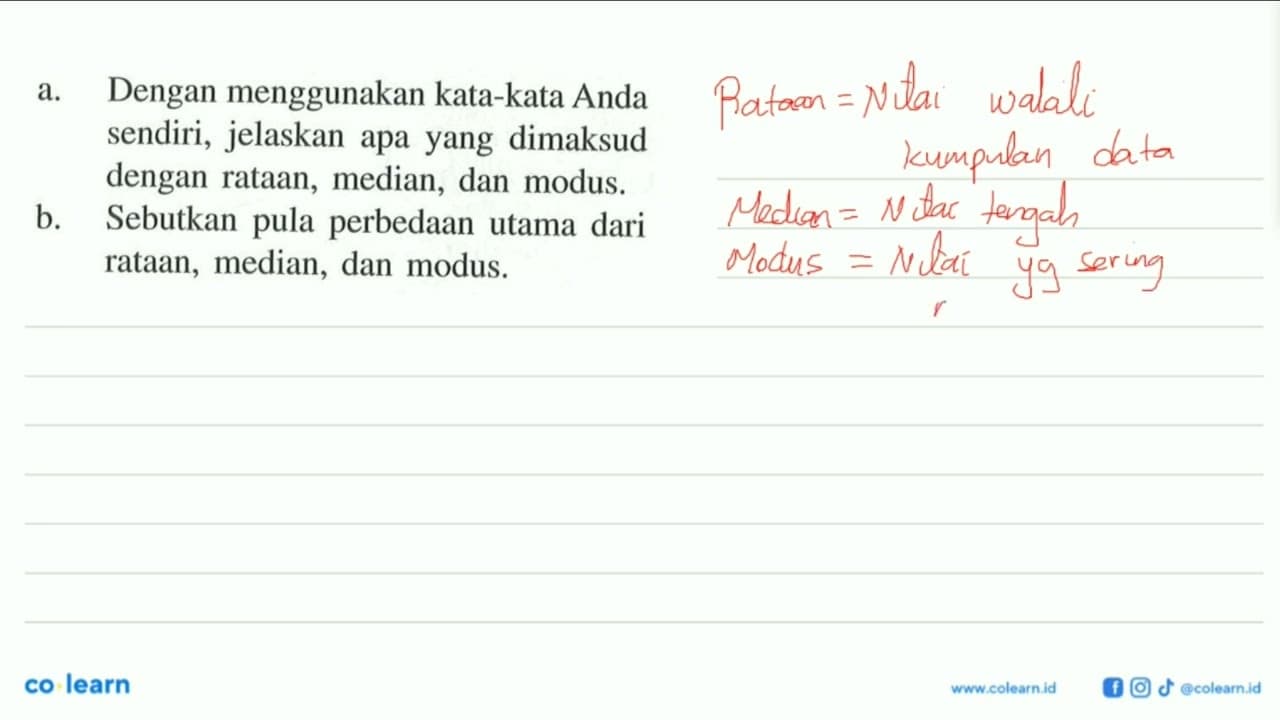 a. Dengan menggunakan kata-kata Anda
sendiri, jelaskan apa yang dimaksud
dengan rataan, median, dan modus.
b. Sebutkan pula perbedaan utama dari
rataan, median, dan modus.
Rataan = Nilai wakali
kumpulan data
Median = Nilai tengah
Modus = Nilai yg sering
r
co learn
www.colearn.id
@colearn.id